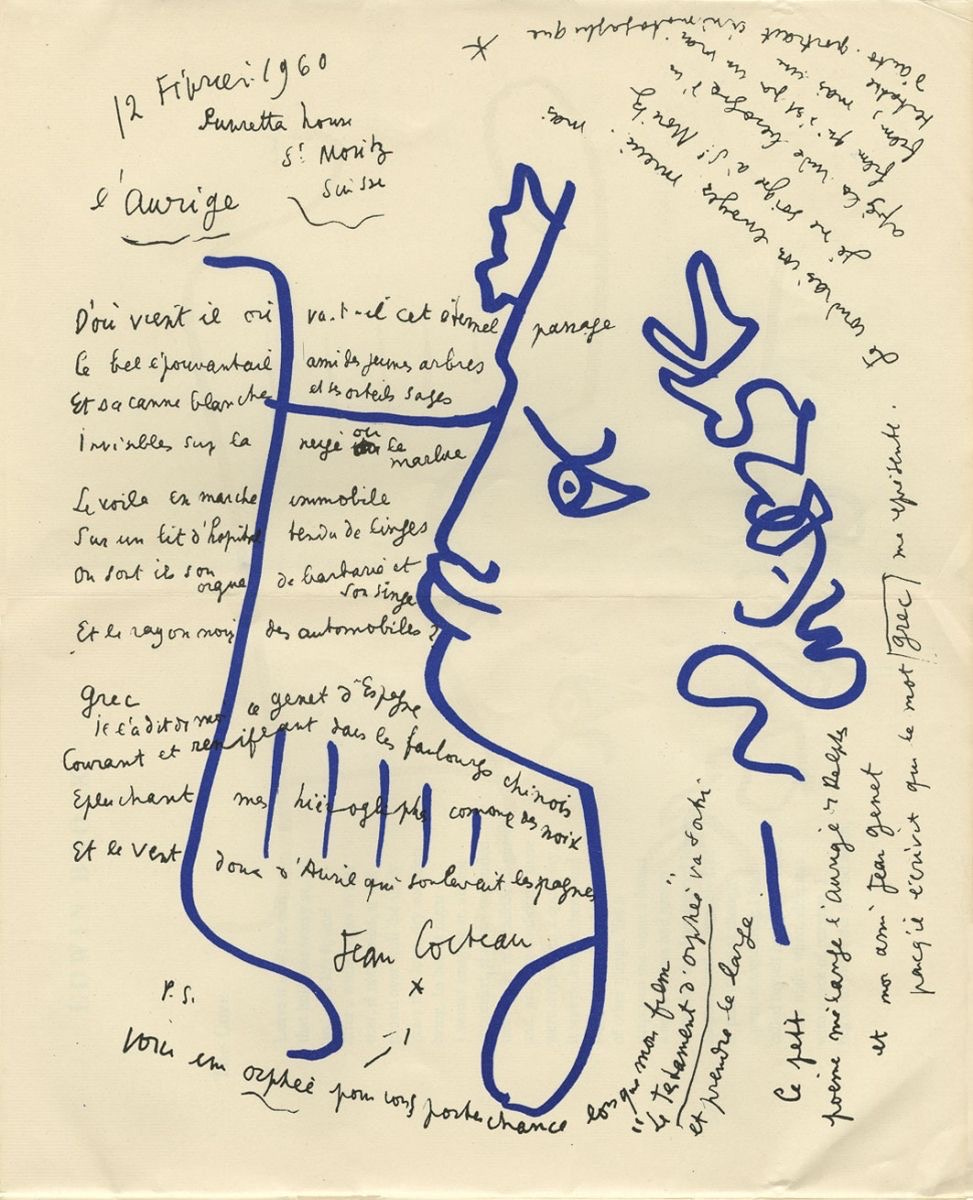 12 Février 1960
Suvretta house
St Moritz
Suisse
l'Aurige
D'où vient il où va.t-il cet éternel passage
Ce bel épouvantail ami des jeunes arbres
Et sa canne blanche et ses orteils sages
Invisibles sur la neige ou le marbre
Le voila en marche immobile
Sur un lit d'hopital tendu de linges
Ou sont ils son orgue de barbarie et son singe
Et le rayon noir des automobiles ?
Grec
je l'ai dit de mer ce genet d'Espagne
Courant et reniflant dans les faubourgs chinois
Epluchant mes hiéroglyphes comme des noix
Et le vent doux d'Avril qui soulevait les pagnes
Jean Cocteau
*
P.S.
Voici un orphée pour vous porter chance lorsque mon film
"Le testament d'orphée" va sortir
et prendre le large
Ce petit
poème mélange l'aurige de Delphes
et mon ami Jean genet
parcqu'il écrivit que le mot grec me représente.
Je voudrais vos envoyer mieux mais
je me soigne à St Moritz
après la rude besogne d'un
film qui n'est pas un vrai
film, mais une
d'auto-portrait cinématographique
*